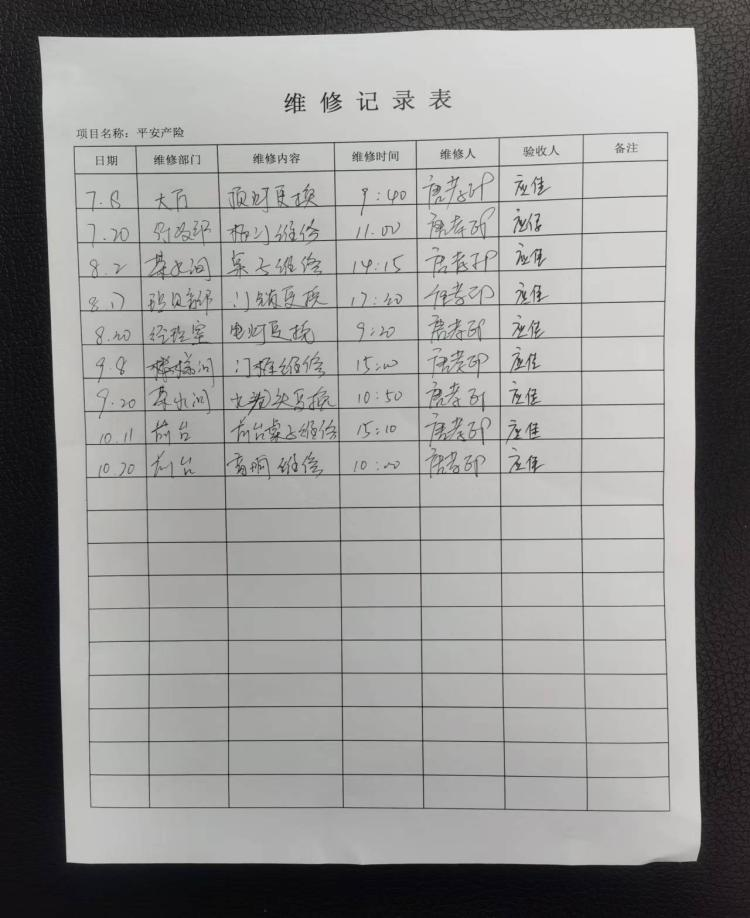 维修记录表
项目名称：平安产险
日期 维修部门 维修内容 维修时间 维修人 验收人 备注
7.8 大厅 顶灯更换 9:40 唐孝邱 应佳
7.20 行政部 柜门维修 11:00 唐孝邱 应佳
8.2 茶水间 桌子维修 14:15 唐孝邱 应佳
8.17 门锁更换 17:20 唐孝邱 应佳
8.20 经理室 电灯更换 9:20 唐孝邱 应佳
9.8 楼梯间 门框维修 15:00 唐孝邱 应佳
9.20 茶水间 水龙头更换 10:50 唐孝邱 应佳
10.11 前台 前台桌子维修 15:10 唐孝邱 应佳
10.20 前台 音响维修 10:00 唐孝邱 应佳